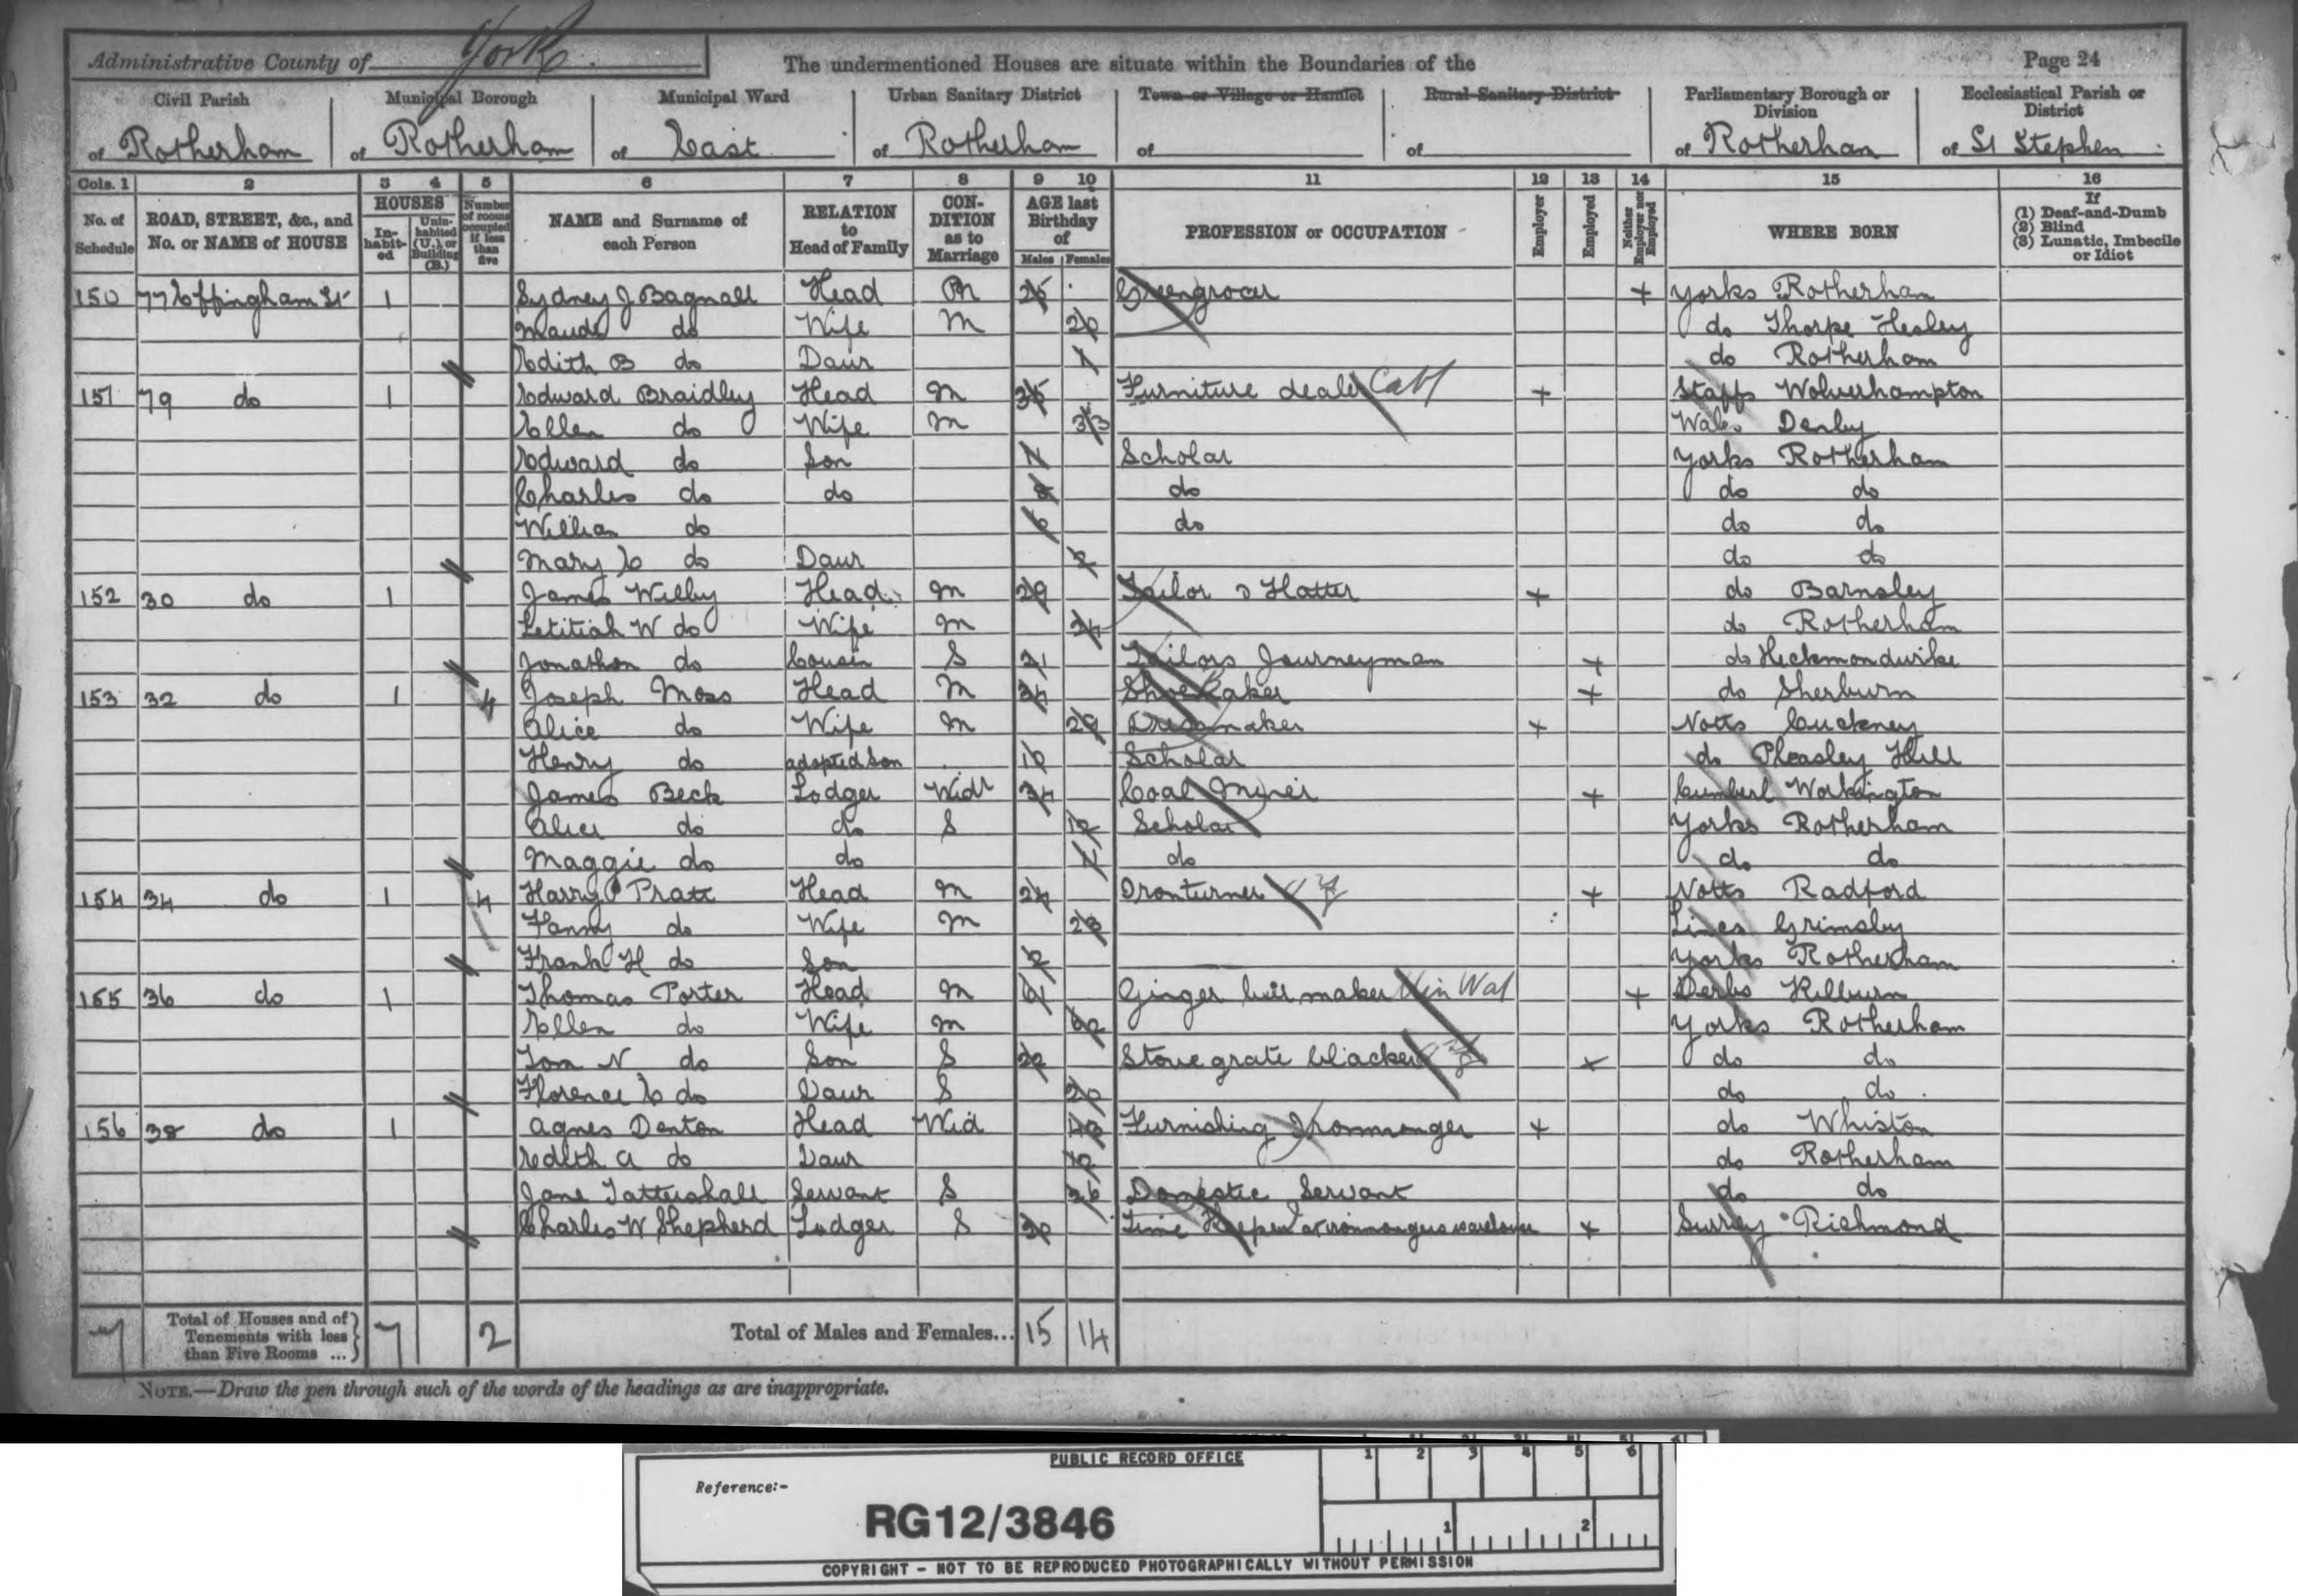 Administrative County of York. The undermentioned Houses are situate within the Boundaries of the Page 24
Civil Parish Municipal Borough Municipal Ward Urban Sanitary District Town or Village or Hamlet Rural Sanitary District Parliamentary Borough or Division Ecclesiastical Parish or District
of Rotherham of Rotherham of East of Rotherham of of of Rotherham of St Stephen
Cols. 1 2 3 4 5 6 7 8 9 10 11 12 13 14 15 16
No. of Schedule ROAD, STREET, &c., and No. or NAME of HOUSE HOUSES In-habit-ed Unin-habited (U.), or Building (B.) Number of rooms occupied if less than five NAME and Surname of each Person RELATION to Head of Family CON-DITION as to Marriage AGE last Birthday of Males Females PROFESSION or OCCUPATION Employer Employed Neither Employer nor Employed WHERE BORN If (1) Deaf-and-Dumb (2) Blind (3) Lunatic, Imbecile or Idiot
150 77 Effingham St 1 Sydney J Bagnall Head M 25 Greengrocer + Yorks Rotherham
Maude do Wife M 20 do Thorpe Hesley
Edith B do Daur 1 do Rotherham
151 79 do 1 Edward Braidley Head M 35 Furniture dealer Cabt + Staffs Wolverhampton
Ellen do Wife M 33 Wales Denby
Edward do Son Scholar Yorks Rotherham
Charles do do 8 do do do
William do 6 do do do
Mary E do Daur 2 do do
152 30 do 1 James Wilby Head M 29 Tailor & Hatter + do Barnsley
Letitiah W do Wife M 34 do Rotherham
Jonathan do Cousin S 21 Tailors Journeyman + do Heckmondwike
153 32 do 1 4 Joseph Moss Head M 34 Shoemaker + do Sherburn
Alice do Wife M 29 Dressmaker + Notts Cuckney
Henry do adopted son 10 Scholar do Pleasley Hill
James Beck Lodger Widr 34 Coal Miner + Cumberl Workington
Alice do do S 12 Scholar Yorks Rotherham
Maggie do do do do do
154 34 do 1 4 Harry Pratt Head M 24 Ironturner + Notts Radford
Fanny do Wife M 23 Lincs Grimsby
Frank H do Son 2 Yorks Rotherham
155 36 do 1 Thomas Porter Head M 61 Ginger beer maker Min Wat + Derbs Kilburn
Ellen do Wife M 62 Yorks Rotherham
Tom N do Son S 22 Stove grate blacker + do do
Florence E do Daur S 20 do do
156 38 do 1 Agnes Denton Head Wid 40 Furnishing Ironmonger + do Whiston
Edith A do Daur 12 do Rotherham
Jane Tattershall Servant S 26 Domestic Servant do do
Charles W Shepherd Lodger S 30 Time Keeper at ironmongers warehouse + Surrey Richmond
7 Total of Houses and of Tenements with less than Five Rooms ... 7 2 Total of Males and Females... 15 14
NOTE.—Draw the pen through such of the words of the headings as are inappropriate.
PUBLIC RECORD OFFICE 1 2 3 4 5 6
Reference:-
RG12/3846
1 2
COPYRIGHT - NOT TO BE REPRODUCED PHOTOGRAPHICALLY WITHOUT PERMISSION